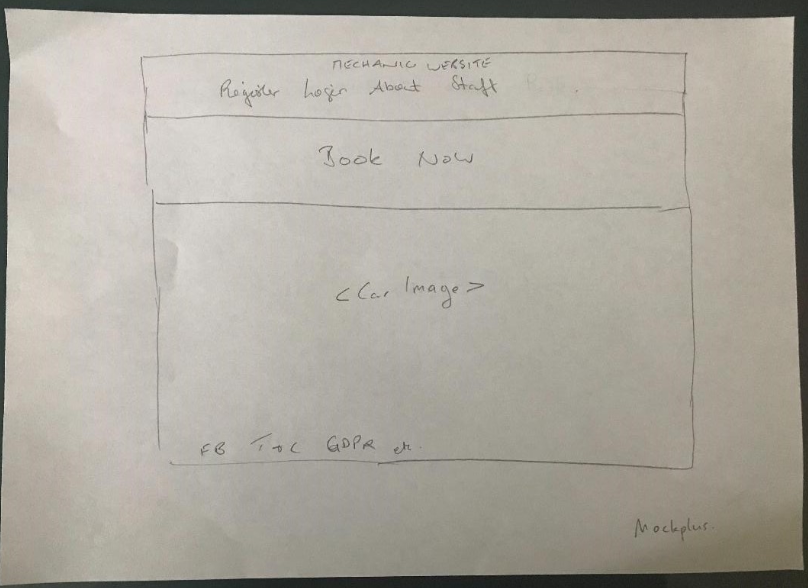 MECHANIC WEBSITE
Register Login About Staff
Book Now
<Car Image>
FB T+C GDPR etc.
Mockplus.